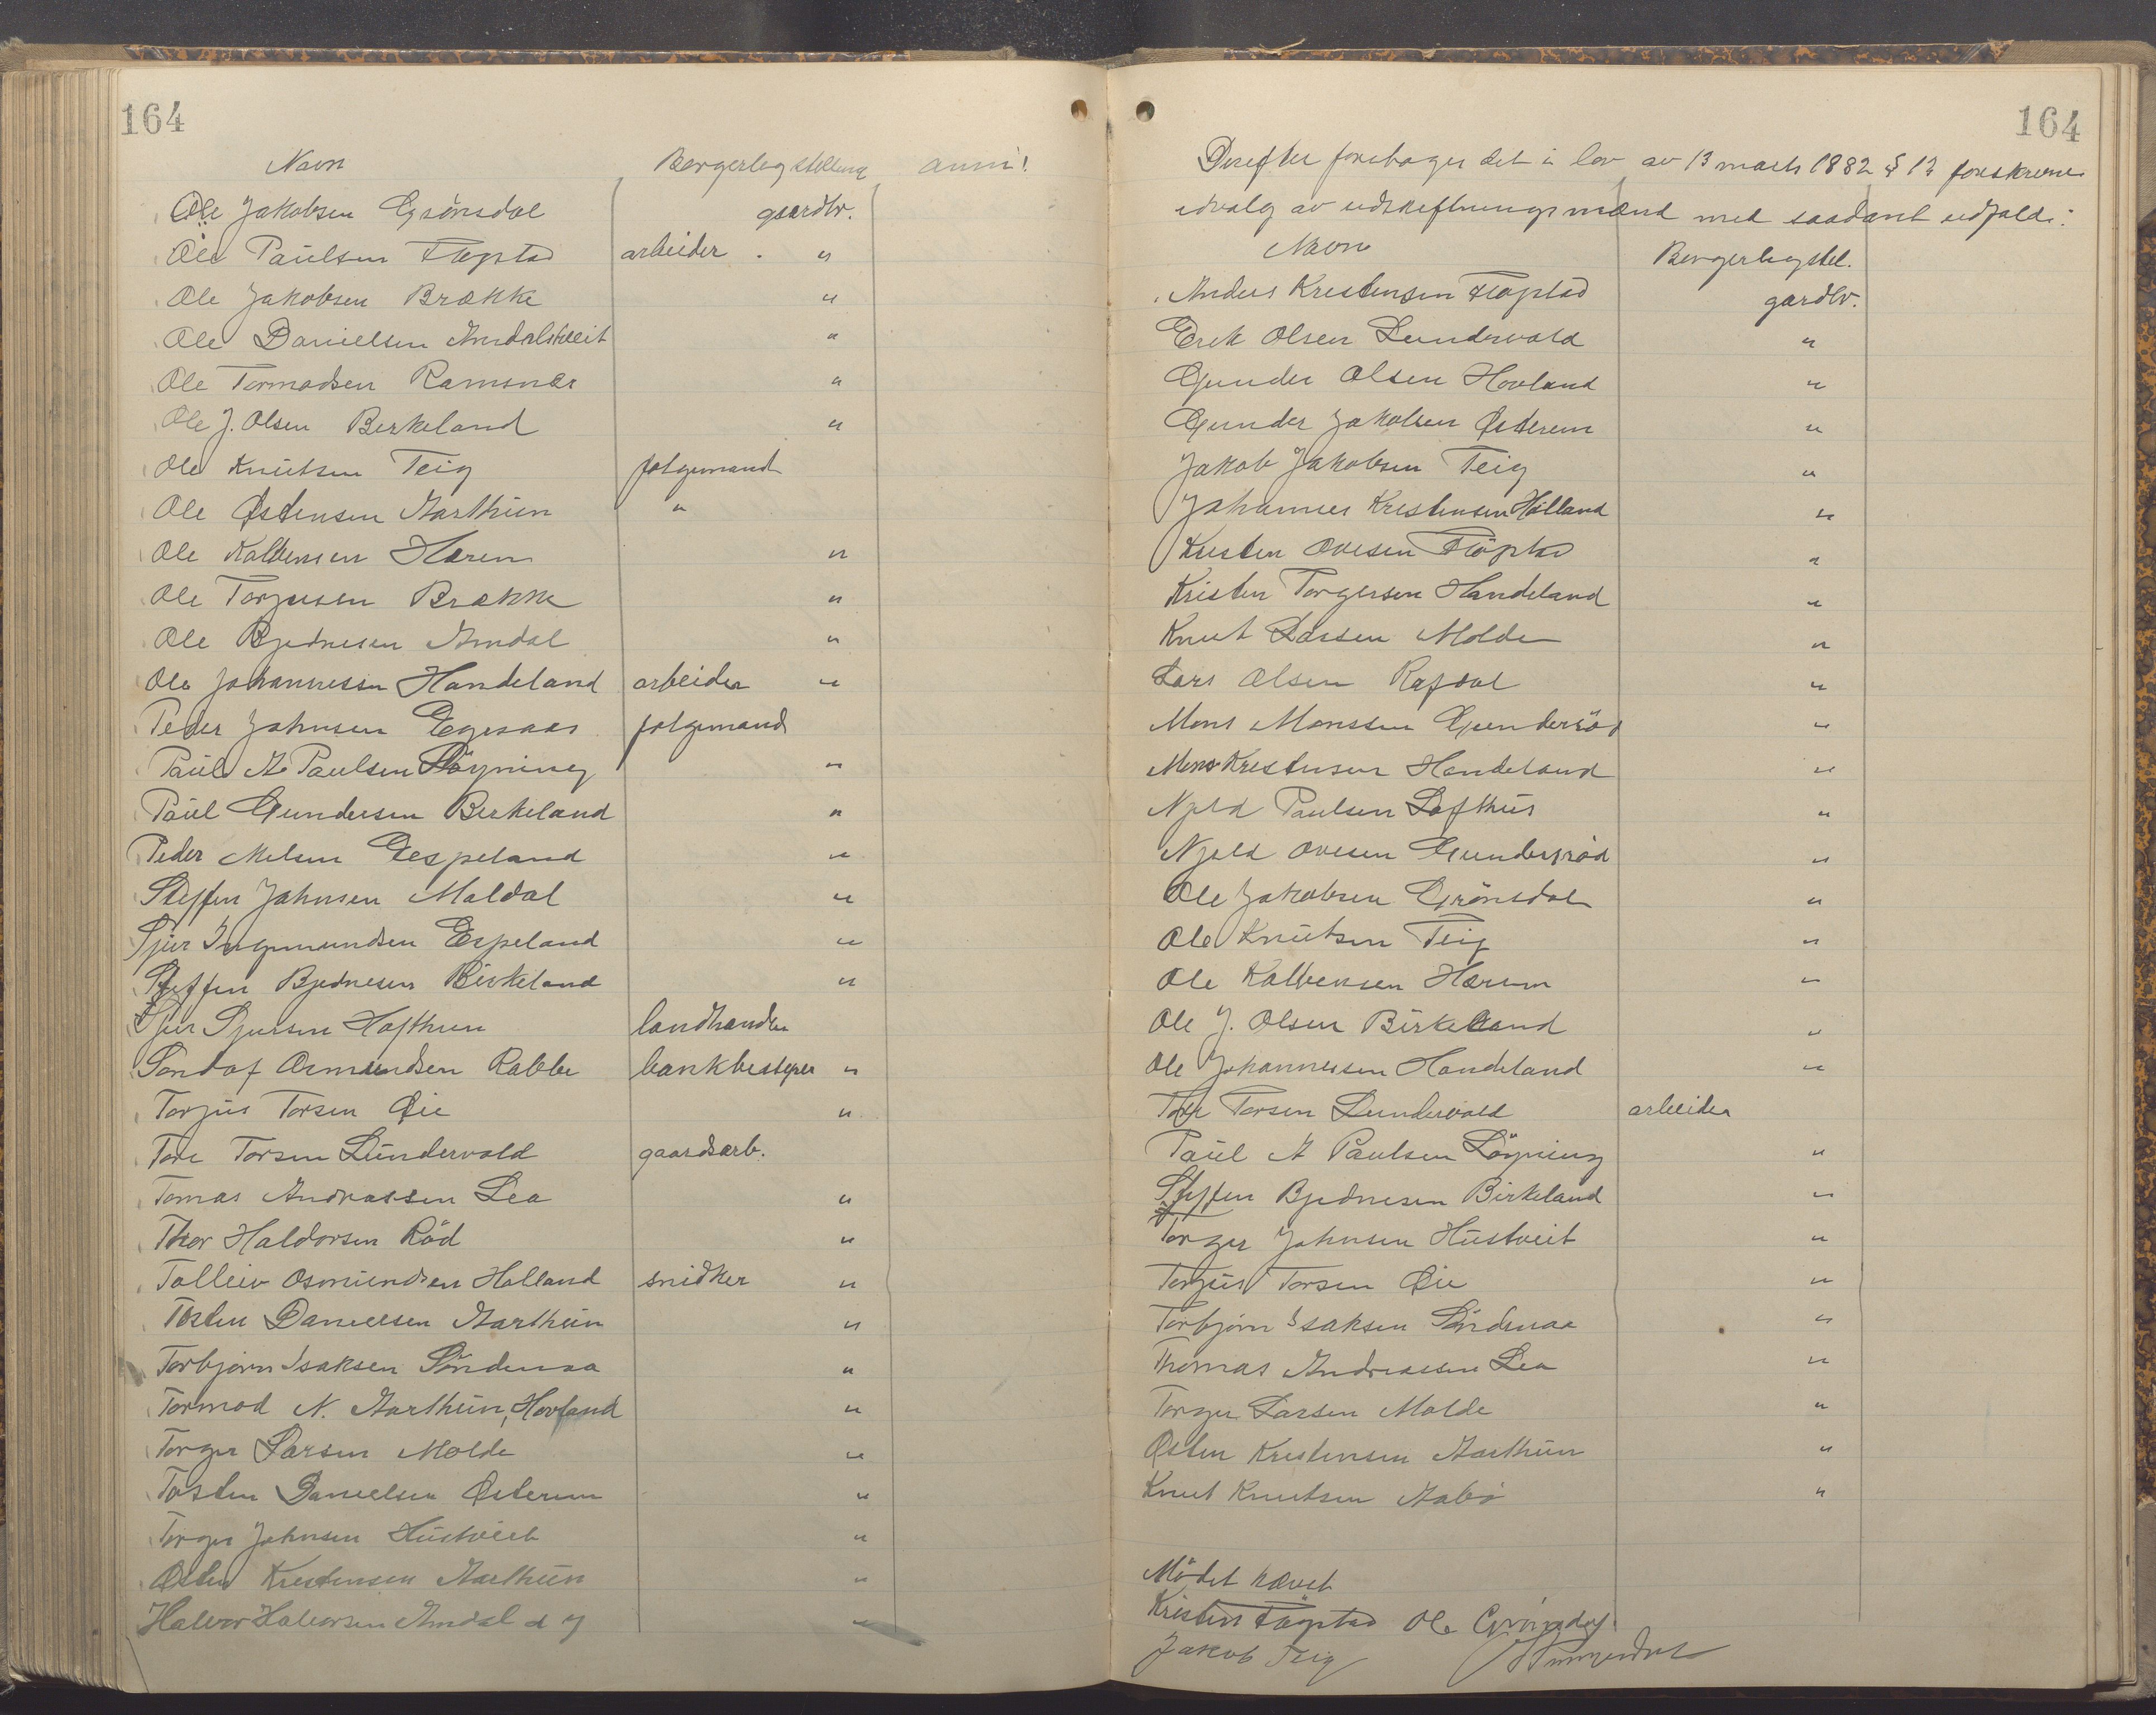 164
Navn Borgerlig stilling anm!
Ole Jakobsen Grønsdal gaardbr.
Ole Paulsen Fløgstad arbeider . "
Ole Jakobsen Brække "
Ole Danielsen Amdalstveit "
Ole Tormodsen Ramsnes "
Ole J. Olsen Birkeland "
Ole Knutsen Teig folgemand
Ole Østensen Aarthun "
Ole Kolbensen Hærem "
Ole Torjusen Brække "
Ole Bjednesen Amdal "
Ole Johannessen Handeland arbeider "
Peder Johnsen folgemand
Paul A. Paulsen Løyning "
Paul Gundersen Birkeland "
Peder Nelsen Espeland "
Steffen Johnsen Maldal "
Sjur Ingmundsen Espeland "
Steffen Bjednesen Birkeland "
Sjur Sjursen Hofthun landhandler
Osmundsen Rabbe bankbestyrer "
Torjus Torsen Øie "
Tore Torsen Lundervold gaardsarb.
Tomas Andreassen Lea "
Thor Haldorsen Rød "
Tolleiv Osmundsen Holland snidker "
Tosten Danielsen Aarthun "
Torbjørn Isaksen Søndenaa "
Tormod N. Aarthun, Hovland "
Torger Larsen Molde "
Tosten Danielsen Østerem "
Torger Johnsen Hustveit "
Østen Kristensen Aarthun "
Halvor Halvorsen Amdal d y "
164
Derefter foretoges det i lov av 13 marts 1882 § 12 foreskrevne
udvalg av udskiftningsmænd med saadant udfald:
Navn Borgerlig stil.
Anders Kristensen Fløgstad gardbr.
Erik Olsen Lundervold "
Gunder Olsen Hovland "
Gunder Jakobsen Østerem "
Jakob Jakobsen Teig "
Johannes Kristensen Holland "
Kristen Ovesen Fløgstad "
Kristen Torgersen Handeland "
Knut Larsen Molde "
Lars Olsen Rafdal "
Mons Monssen Gundersød "
Mons Kristensen Handeland "
Njeld Paulsen Lofthus "
Njeld Ovesen Gundersrød "
Ole Jakobsen Grønsdal "
Ole Knutsen Teig "
Ole Kolbensen Hærem "
Ole J. Olsen Birkeland "
Ole Johannessen Handeland "
Tore Torsen Lundervold arbeider
Paul A Paulsen Løyning "
Steffen Bjednesen Birkeland "
Torger Johnsen Hustveit "
Torjus Torsen Øie "
Torbjørn Isaksen Søndenaa "
Thomas Andreassen Lea "
Torger Larsen Molde "
Østen Kristensen Aarthun "
Knut Knutsen Aabø "
Mødet hævet
Kristen Fløgstad Ole Grønsdal.
Jakob Teig